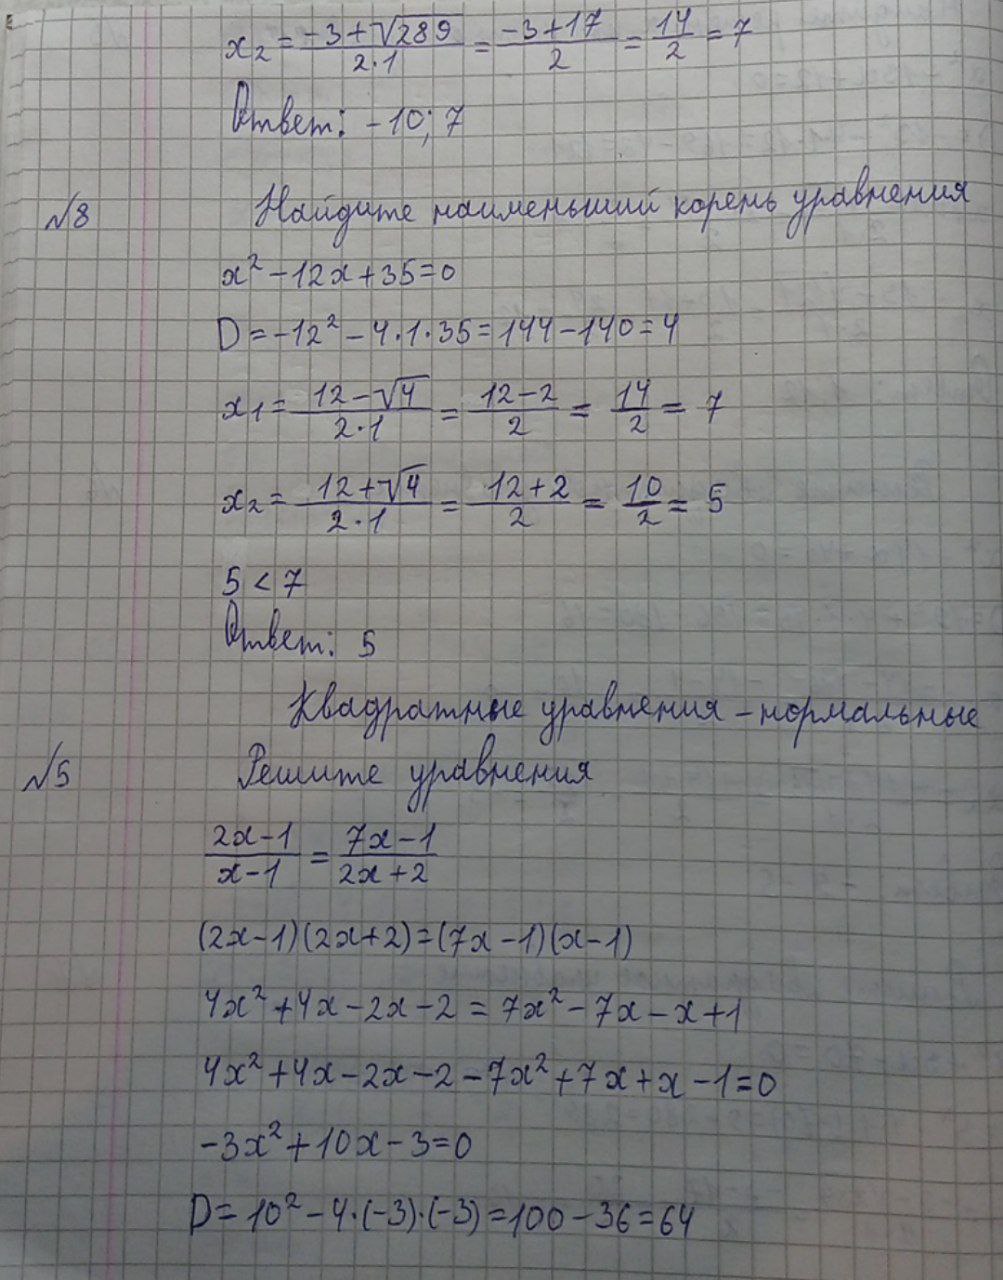 x₂ = (-3+√289)/(2·1) = (-3+17)/2 = 14/2 = 7
Ответ: -10; 7
№8 Найдите наименьший корень уравнения
x² - 12x + 35 = 0
D = -12² - 4·1·35 = 144 - 140 = 4
x₁ = (12-√4)/(2·1) = (12-2)/2 = 14/2 = 7
x₂ = (12+√4)/(2·1) = (12+2)/2 = 10/2 = 5
5 < 7
Ответ: 5
Квадратные уравнения - нормальные
№5 Решите уравнения
(2x-1)/(x-1) = (7x-1)/(2x+2)
(2x-1)(2x+2)=(7x-1)(x-1)
4x² + 4x - 2x - 2 = 7x² - 7x - x + 1
4x² + 4x - 2x - 2 - 7x² + 7x + x - 1 = 0
-3x² + 10x - 3 = 0
D = 10² - 4·(-3)·(-3) = 100 - 36 = 64